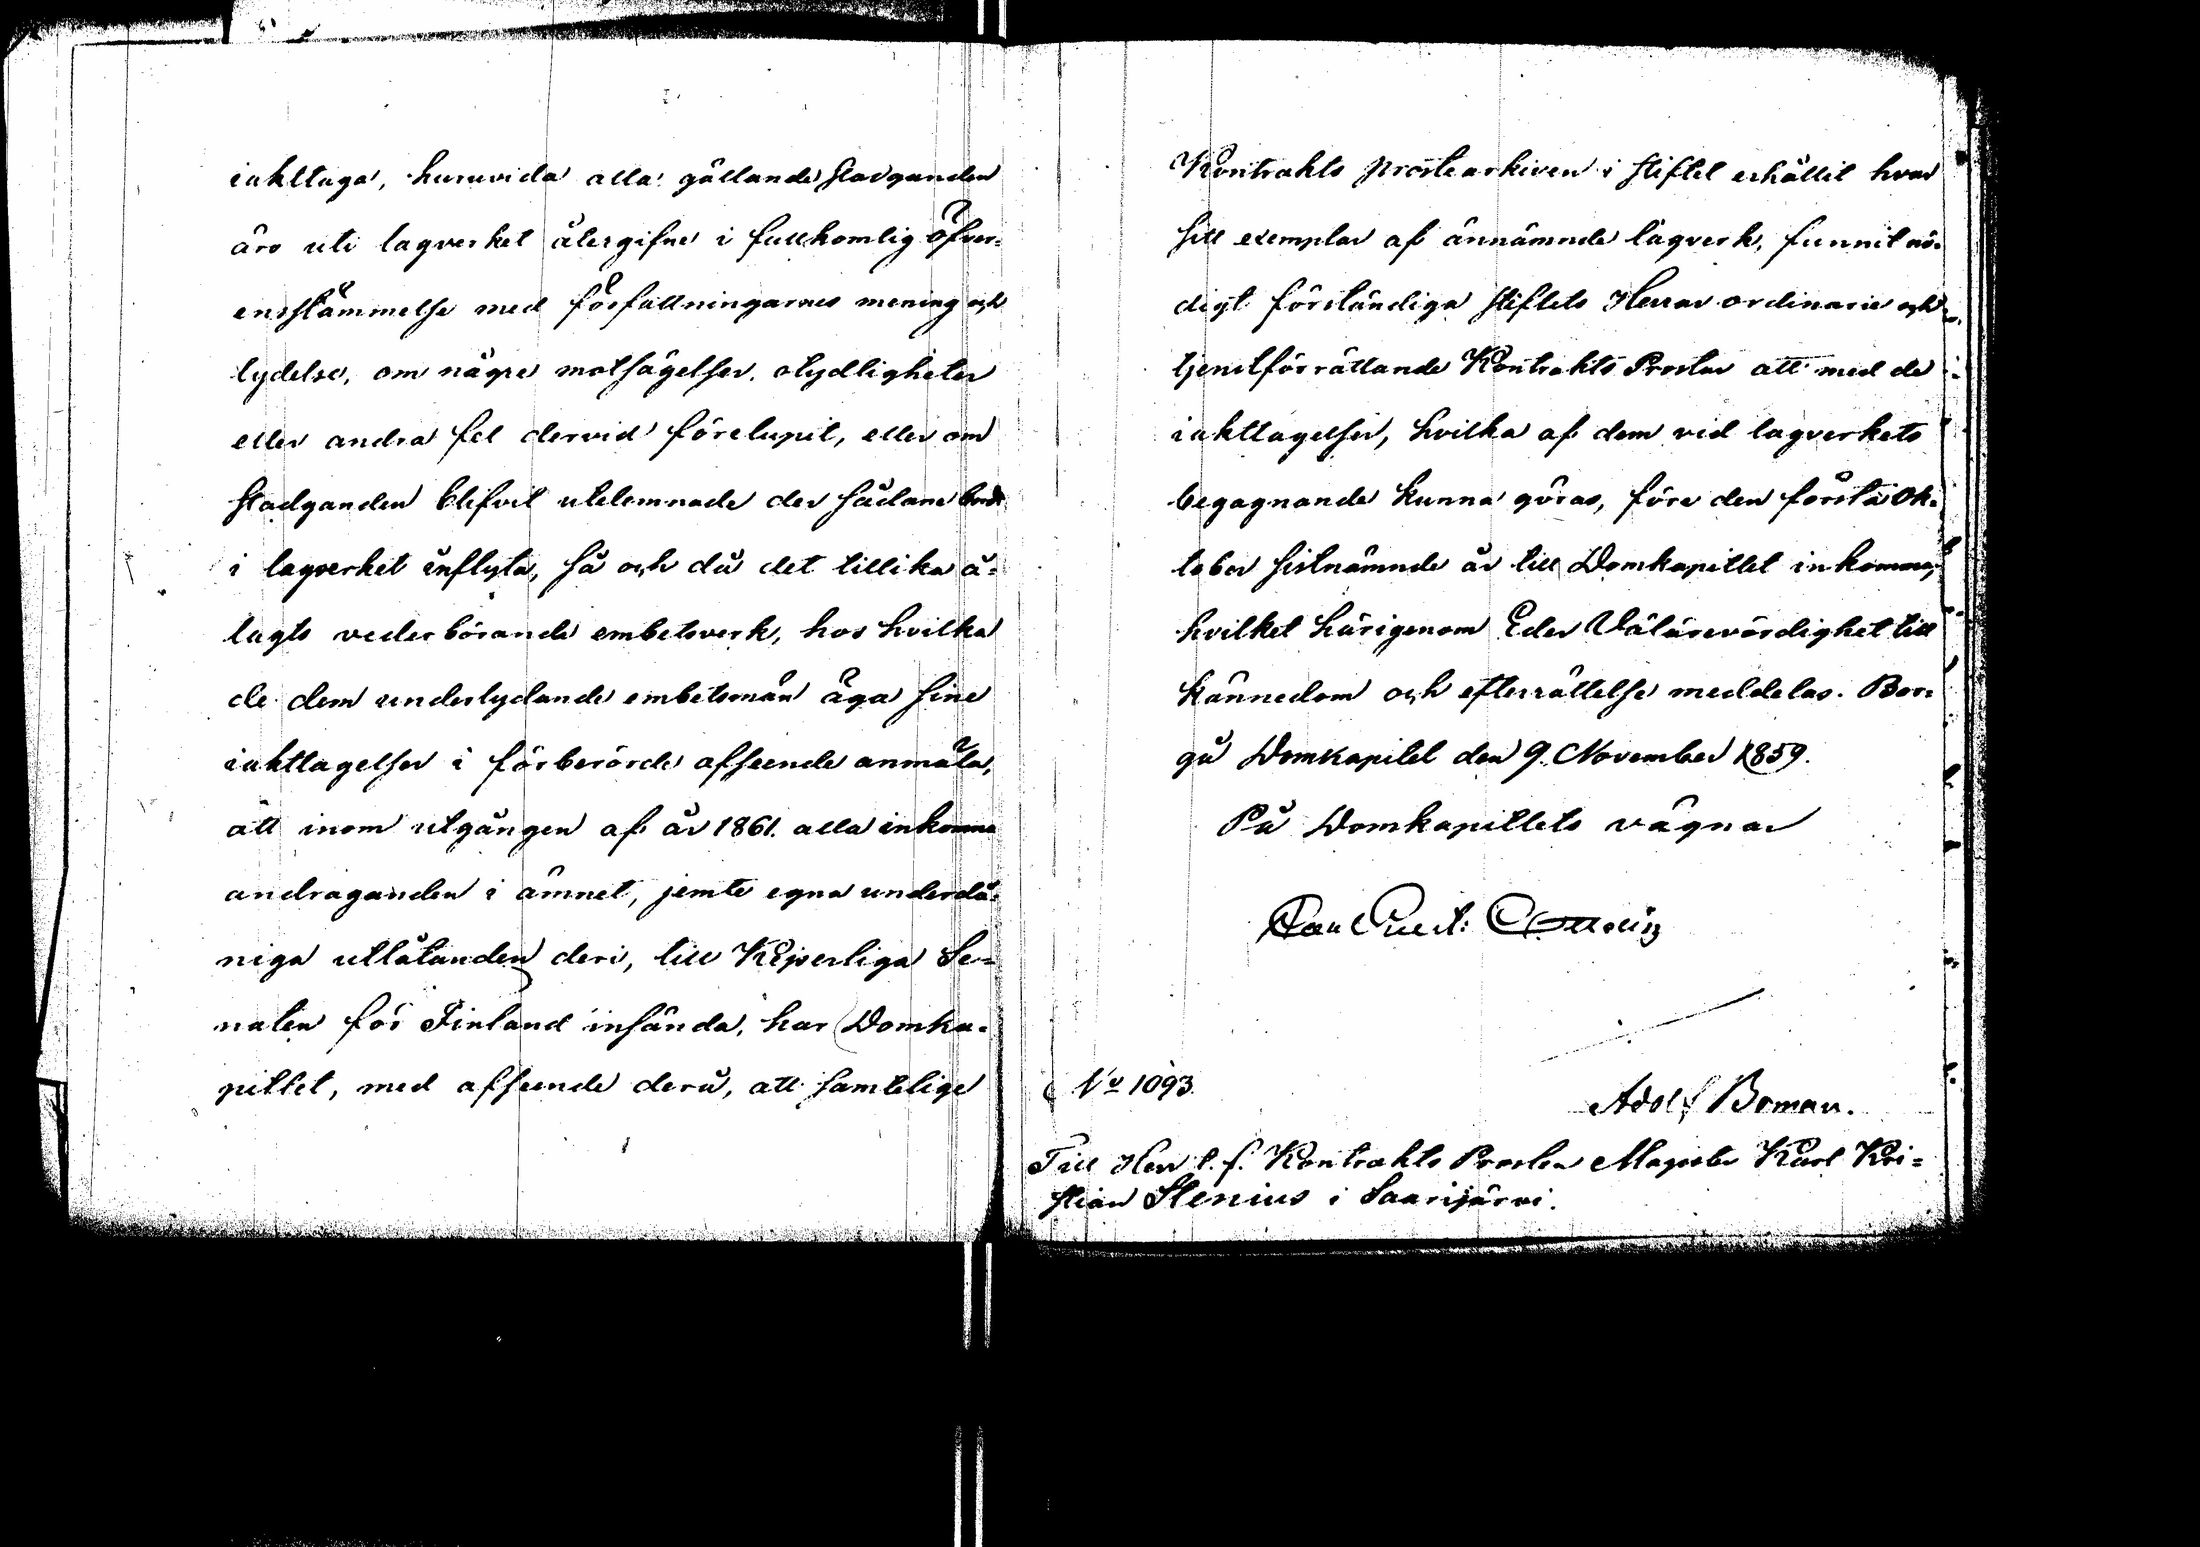 iakttaga, huruvida alla gällande stadganden
äro uti lagverket återgifne i fullkomlig öfver-
ensstämmelse med författningarnes mening och
lydelse, om några motsägelser, otydligheter
eller andra fel dervid förelupit, eller om
stadganden blifvit utelemnade der sådane bordt
i lagverket inflyta, så och då det tillika å-
lagts vederbörande embetsverk, hos hvilka
de dem underlydande embetsmän äga sine
iakttagelser i förberörde afseende anmäla,
att inom utgången af år 1861. alla inkomna
andraganden i ämnet, jemte egna underdå-
niga utlåtanden deri, till Kejserliga Se-
naten för Finland insända, har Domka-
pitlet, med afseende derå, att samtelige
Kontrakts prostearkiven i stiftet erhållit hvar
sitt exemplar af ännämnde lagverk, funnit nö-
digt förständiga stiftets Herrar ordinarie och
tjenstförrättande Kontrakts Prostar att med de
iakttagelser, hvilka af dem vid lagverkets
begagnande kunna göras, före den första Ok-
tober sistnämnde år till Domkapitlet inkomma,
hvilket härigenom Eder Välärevördighet till
kännedom och efterrättelse meddelas. Bor-
gå Domkapitel den 9. November 1859.
På Domkapitlets vägnar
Carl
No 1093.
Adolf Boman.
Till Herr t. f. Kontrakts Prosten Magister Karl Kri-
stian Stenius i Saarijärvi.